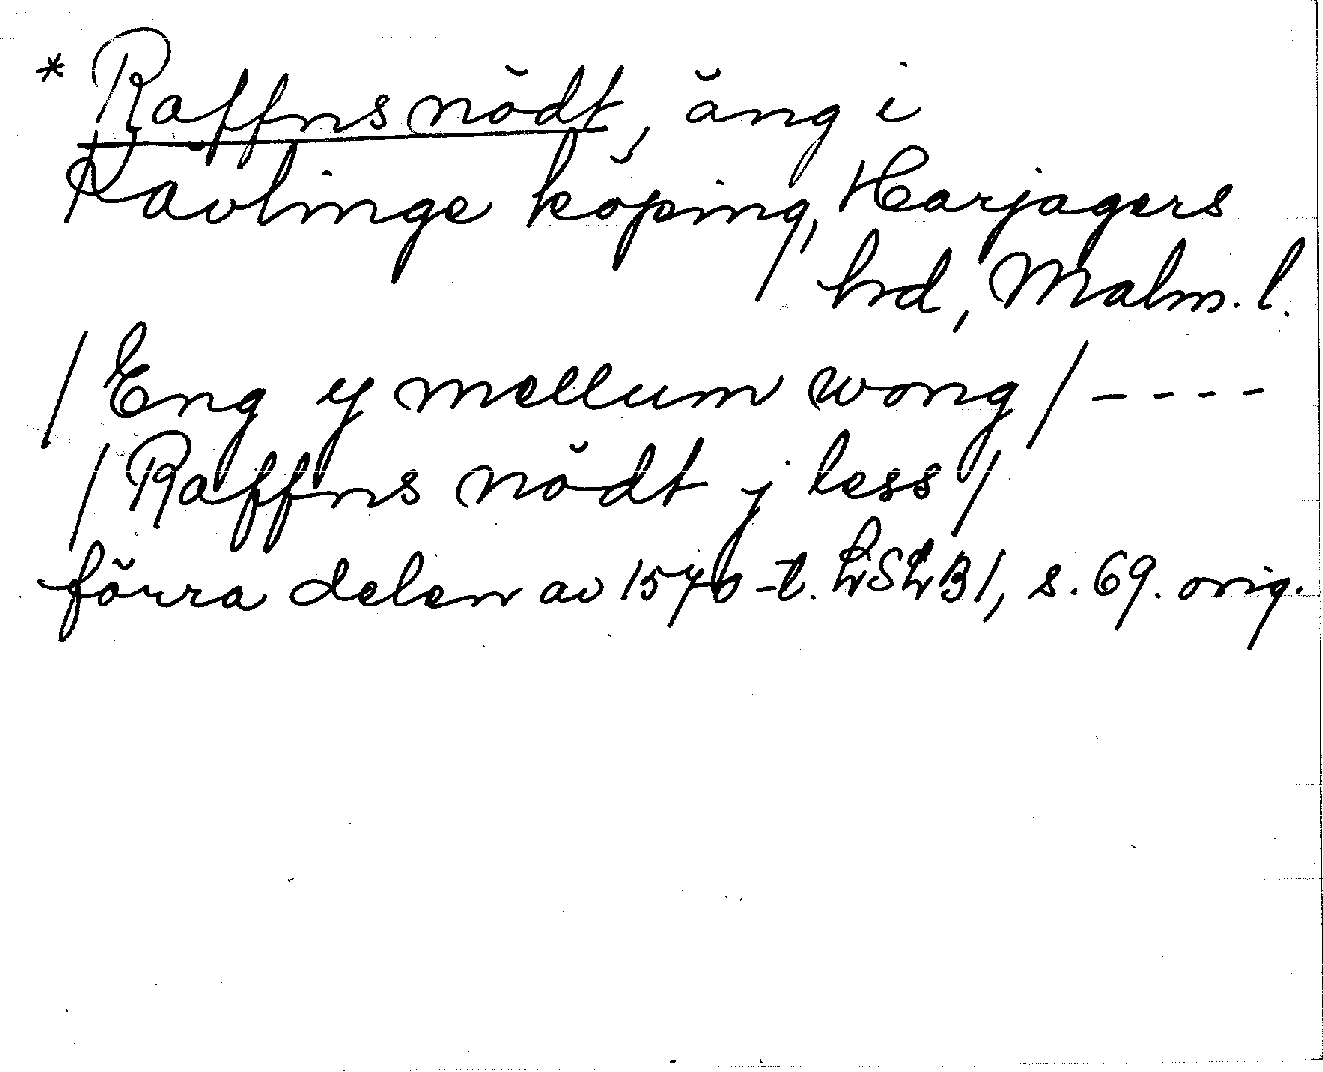 * Raffns nödt, äng i
Kävlinge köping, Harjagers
hrd, Malm. l.
/ Eng y mellum wong / - - - -
/ Raffns nödt j less /
förra delen av 1570-t. LSLB1, s. 69. orig.